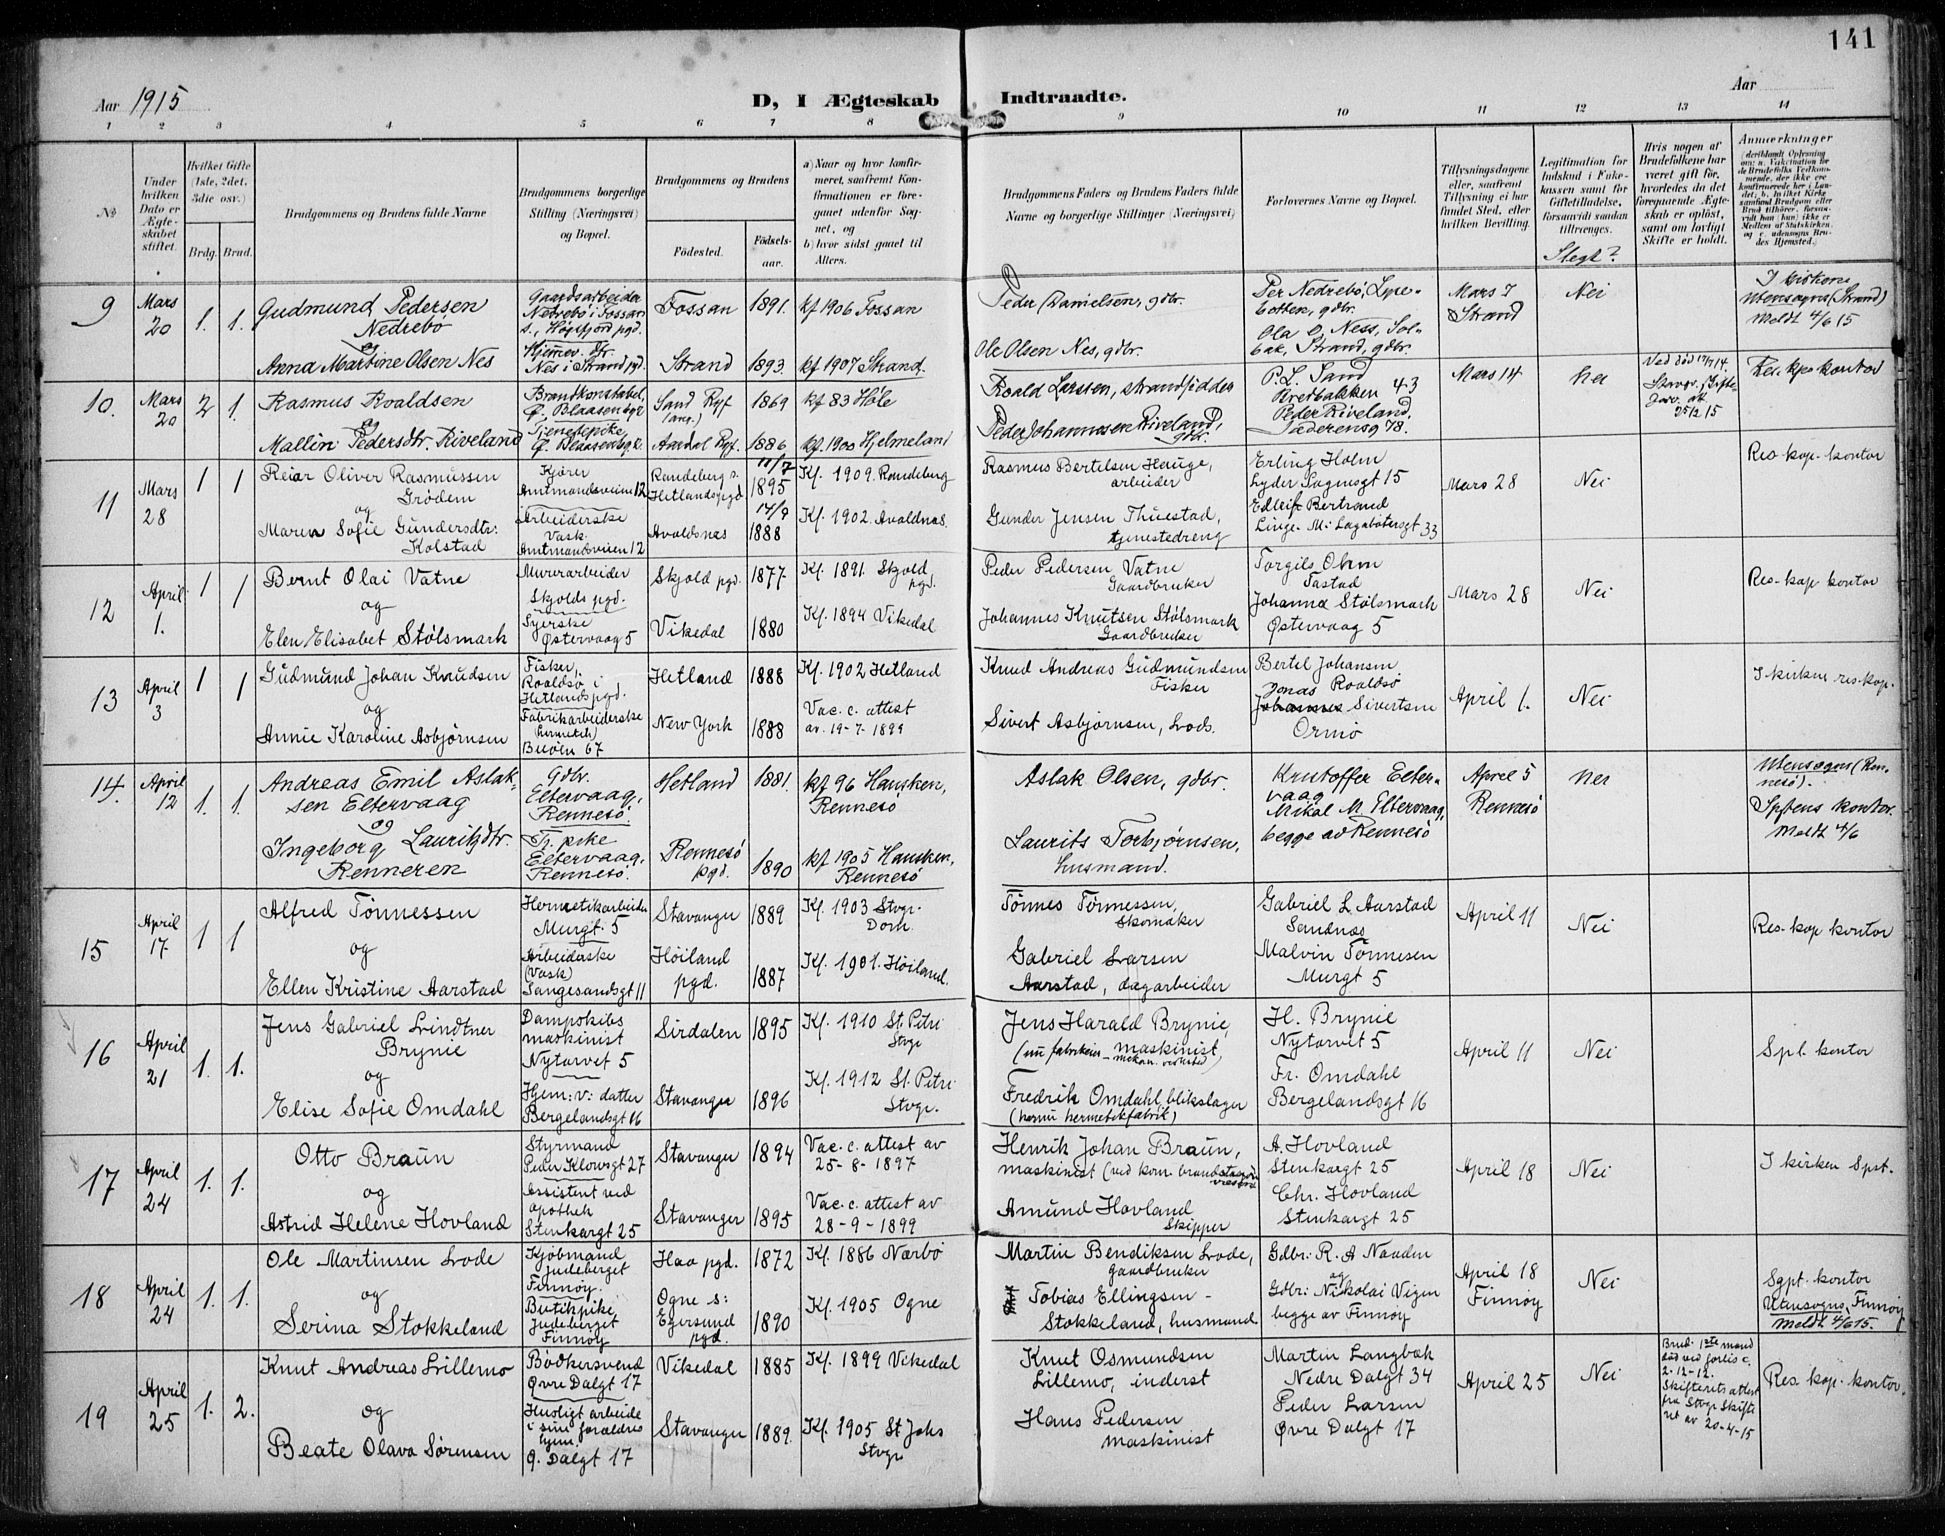 141
Aar 1915
D, I Ægteskab Indtraadte.
Aar
1 2 3 4 5 6 7 8 9 10 11 12 13 14
№
Under hvilken Dato er Ægteskabet stiftet.
Hvilket Gifte (1ste, 2det, 3die osv.)
Brdg. Brud.
Brudgommens og Brudens fulde Navne
Brudgommens borgerlige Stilling (Næringsvei) og Bopæl.
Brudgommens og Brudens
Födested.
Födselsaar.
a) Naar og hvor konfirmeret, saafremt Konfirmationen er foregaaet udenfor Sognet, og
b) hvor sidst gaaet til Alters.
Brudgommens Faders og Brudens Faders fulde Navne og borgerlige Stillinger (Næringsvei)
Forlovernes Navne og Bopæl.
Tillysningsdagene eller, saafremt Tillysning ei har fundet Sted, efter hvilken Bevilling.
Legitimation for Indskud i Enkekassen samt for Giftetilladelse, forsaavidt saadan tiltrænges.
Slegt?
Hvis nogen af Brudefolkene har været gift för, hvorledes da det foregaaende Ægteskab er oplöst, samt om lovligt Skifte er holdt.
Anmærkninger
9
Mars 20
1. 1.
Gudmund Pedersen
Nedrebø
og
Anna Martine Olsen Nes
Gaardsarbeider
Nedrebö i Fossan
s., Høgsfjord pgd.
Hjemev. dtr.
Nes i Strand pgd.
Fossan 1891. kf 1906 Fossan
Strand 1893. kf 1907 Strand.
Peder Danielsen, gdbr.
Ole Olsen Nes, gdbr.
Per Nedrebö, Lysebotten, gdbr.
Ola O. Ness, Solbak, Strand, gdbr.
Mars 7
Strand
Nei
I kirken
Utensogns (Strand)
Meldt 4/6 15
10.
Mars 20
2 1.
Rasmus Roaldsen
og
Mallin Pedersdtr. Riveland
Brandkonstabel,
Ø. Blaasenbgt
Tjenestepike
Ø. Blaasenbg.
Sand Ryf 1869 kf 83 Hole
Aardal Ryf. 1886 kf. 1900 Hjelmeland
Roald Larssen, strandsidder
Peder Johannessen Riveland, gdbr.
P. L. Sand
Kirkebakken 43
Peder Riveland,
Jæderensg 78.
Mars 14
Nei
Ved död 17/7 14.
Stavgr. skifte-
jorv. att.
25/2 15
Res. kps kontor
11
Mars 28
1 1
Reiar Oliver Rasmussen
Grödem
og
Maren Sofie Gundersdtr.
Kolstad
Kjører
Amtmandsveien 12
Arbeiderske
Vask.
Amtmandsveien 12
Randeberg s.
Hetlands pgd
11/7
1895
Kf. 1909 Randeberg
Avaldsnes
14/9
1888
Kf. 1902. Avaldnas.
Rasmus Bertelsen Hauge,
arbeider
Gunder Jensen Thuestad,
tjenestedreng
Erling Holm
Lyder Sagensgt 15
Edleif Bertrand
Linge. M: Lagabøtersgt 33
Mars 28
Nei
Res-kap-kontor
12
April 1.
1 1
Bernt Olai Vatne
og
Elen Elisabet Stølsmark
Murerarbeider
Skjolds pgd.
Syerske
Østervaag 5
Skjold pgd. 1877. Kf. 1891. Skjold pgd.
Vikedal 1880 Kf. 1894 Vikedal
Peder Pedersen Vatne
Gaardbruker
Johannes Knutsen Stølsmark
Gaardbruker
Torgils Ohm
Tastad
Johanna Stølsmark
Østervaag 5
Mars 28
Nei
Res-kap kontor
13
April 3
1 1
Gudmund Johan Knudsen
og
Annie Karoline Asbjørnsen
Fisker,
Roaldsö i
Hetlands pgd.
Fabrikarbeiderske
(hermetik)
Buöen 67
Hetland 1888 Kf. 1902 Hetland
New York 1888 Vac. c. attest
av. 19-7-1899
Knud Andreas Gudmundsen
Fisker
Sivert Asbjørnsen, Lods.
Bertel Johansen
Jonas Roaldsö
Johannes Sivertsen
Ormö
April 1.
Nei
I kirken res-kap.
14.
April 12
1. 1.
Andreas Emil Aslaksen Eltervaag
og
Ingeborg Lauritzdtr.
Renneren
Gdbr.
Eltervaag,
Rennesö.
Tj. pike
Eltervaag,
Rennesö.
Hetland 1881. kf 96 Hausken,
Rennesö
Rennesö pgd. 1890 kf 1905 Hausken,
Rennesö
Aslak Olsen, gdbr.
Laurits Torbjörnsen,
husmand.
Kristoffer Eltervaag
Mikal M. Eltervaag,
begge av Rennesö
April 5
Rennesö
Nei
Utensogns (Rennesö).
Sptens kontor.
Meldt 4/6
15
April 17.
1 1
Alfred Tönnessen
og
Ellen Kristine Aarstad
Hermetikarbeider
Murgt. 5
Arbeiderske
(Vask)
Langesandsgt 11
Stavanger 1889 Kf. 1903 Stvgr.
Dom.
Höiland pgd. 1887 Kf. 1901. Höiland.
Tönnes Tönnessen,
Skomaker
Gabriel Larsen
Aarstad, dagarbeider
Gabriel L Aarstad
Sandnæs
Malvin Tönnesen
Murgt 5
April 11
Nei
Res-kap kontor
16
April 21
1. 1.
Jens Gabriel Lindtner
Brynie
og
Elise Sofie Omdahl
Dampskibs
maskinist
Nytorvet 5
Hjem: v: datter
Bergelandsgt 16
Sirdalen 1895 Kf. 1910 St. Petri
Stvgr
Stavanger 1896 Kf. 1912 St. Petri
Stvgr.
Jens Harald Brynie,
(nu fabrikeier - maskinist
mekan. verksted)
Fredrik Omdahl, blikslager
(hermetikfabrik)
H. Brynie
Nytorvet 5
Fr. Omdahl
Bergelandsgt 16
April 11
Nei
Spt. kontor
17
April 24
1. 1.
Otto Braun
og
Astrid Helene Hovland
Styrmand
Peder Klowsgt 27
Assistent ved
apothek
Stenkargt 25
Stavanger 1894 Vac. c. attest av
25-8-1897
Stavanger 1895 Vac. c. attest av
28-9-1899
Henrik Johan Braun,
maskinist (ved kom. brandstasjon
Amund Hovland
Skipper
A. Hovland
Stenkargt 25
Chr. Hovland
Stenkargt 25
April 18
Nei
I kirken Spst.
18
April 24
1. 1.
Ole Martinsen Lode
og
Serina Stokkeland
Kjöbmand
Judeberget
Finnöy.
Butikpike
Judeberget
Finnöy
Haa pgd. 1872 Kf. 1886 Nærbö
Ogne s:
Egersund pgd. 1890 Kf. 1905 Ogne
Martin Bendiksen Lode,
gaardbruker
Tobias Ellingsen-
Stokkeland, husmand
Gdbr: R. A Naaden
og
Gdbr: Nikolai Vigen
begge av Finnöy
April 18
Finnöy
Nei
Sgpt. kontor
Utensogns, Finnöy
Meldt 4/6 15.
19
April 25
1. 2.
Knut Andreas Lillemo
og
Beate Olava Sörensen
Bödkersvend
Øvre Dalgt 17
Husligt arbeide
i sine forældres
hjem.
Ø. Dalgt 17
Vikedal 1885 Kf. 1899 Vikedal
Stavanger 1889. Kf. 1905 St Johs
Stvgr
Knut Osmundsen
Lillemo, inderst
Hans Pedersen
maskinist
Martin Langbak
Nedre Dalgt 34
Peder Larsen
Øvre Dalgt 17
April 25
Nei
Brud: 1ste mand
död ved forlis c.
2-12-12.
Skifterets attest
fra Stvgr Skifte
ret av 20-4-15
Res. kap. kontor.